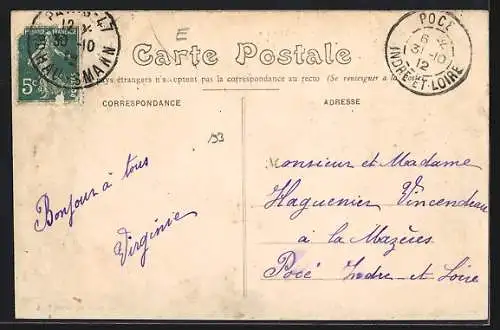 E
PARIS-47
12
30 -10
HAUSSMANN
5c
POCÉ
6
31 -10
12
INDRE-ET-LOIRE
Carte Postale
pays étrangers n'acceptent pas la correspondance au recto (Se renseigner à la
CORRESPONDANCE
ADRESSE
193
Bonjour à tous
Virginie
Monsieur et Madame
Haguenier Vincendeau
à la Mazères
Pocé Indre et Loire